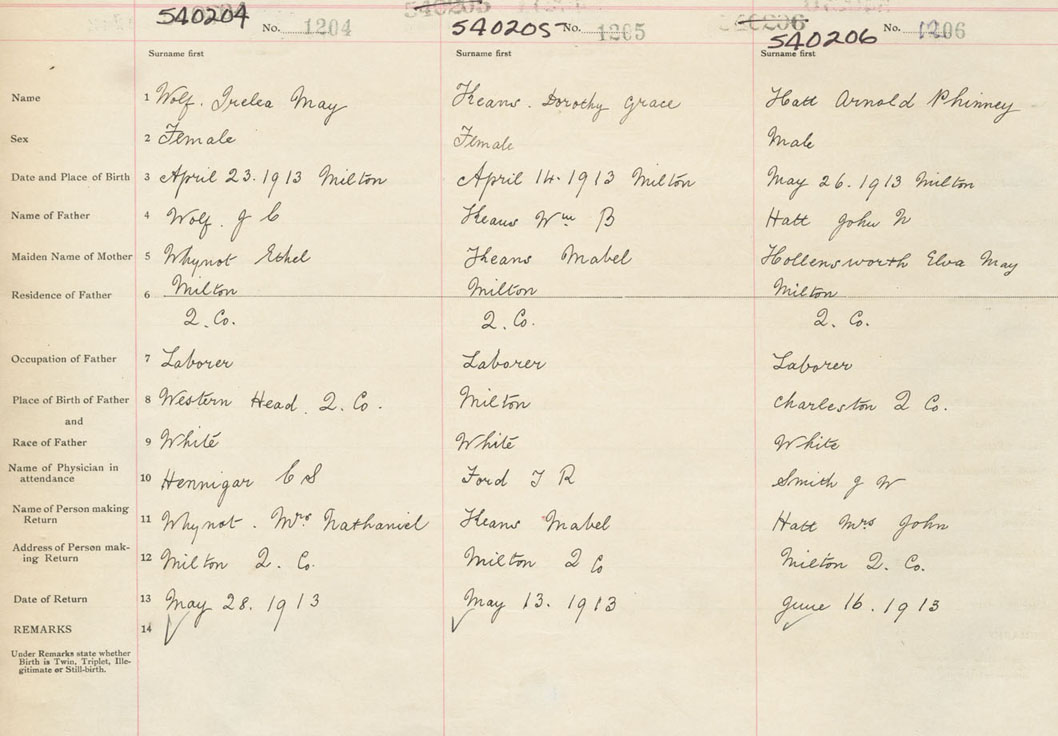 540204 No. 1204 540205 No. 1205 540206 No. 1206
Surname first Surname first Surname first
Name 1 Wolf. Irelea May Keans. Dorothy Grace Hatt Arnold Phinney
Sex 2 Female Female Male
Date and Place of Birth 3 April 23. 1913 Milton April 14. 1913 Milton May 26. 1913 Milton
Name of Father 4 Wolf. J C Keans Wm B Hatt John N
Maiden Name of Mother 5 Whynot Ethel Keans Mabel Hollensworth Elva May
Residence of Father 6 Milton Milton Milton
Q. Co. Q. Co. Q. Co.
Occupation of Father 7 Laborer Laborer Laborer
Place of Birth of Father 8 Western Head. Q. Co. Milton Charleston Q Co.
and
Race of Father 9 White White White
Name of Physician in
attendance 10 Hennigar C S Ford T R Smith J W
Name of Person making
Return 11 Whynot. Mrs Nathaniel Keans Mabel Hatt Mrs John
Address of Person mak-
ing Return 12 Milton Q. Co. Milton Q Co Milton Q. Co.
Date of Return 13 May 28. 1913 May 13. 1913 June 16. 1913
REMARKS 14
Under Remarks state whether
Birth is Twin, Triplet, Ille-
gitimate or Still-birth.